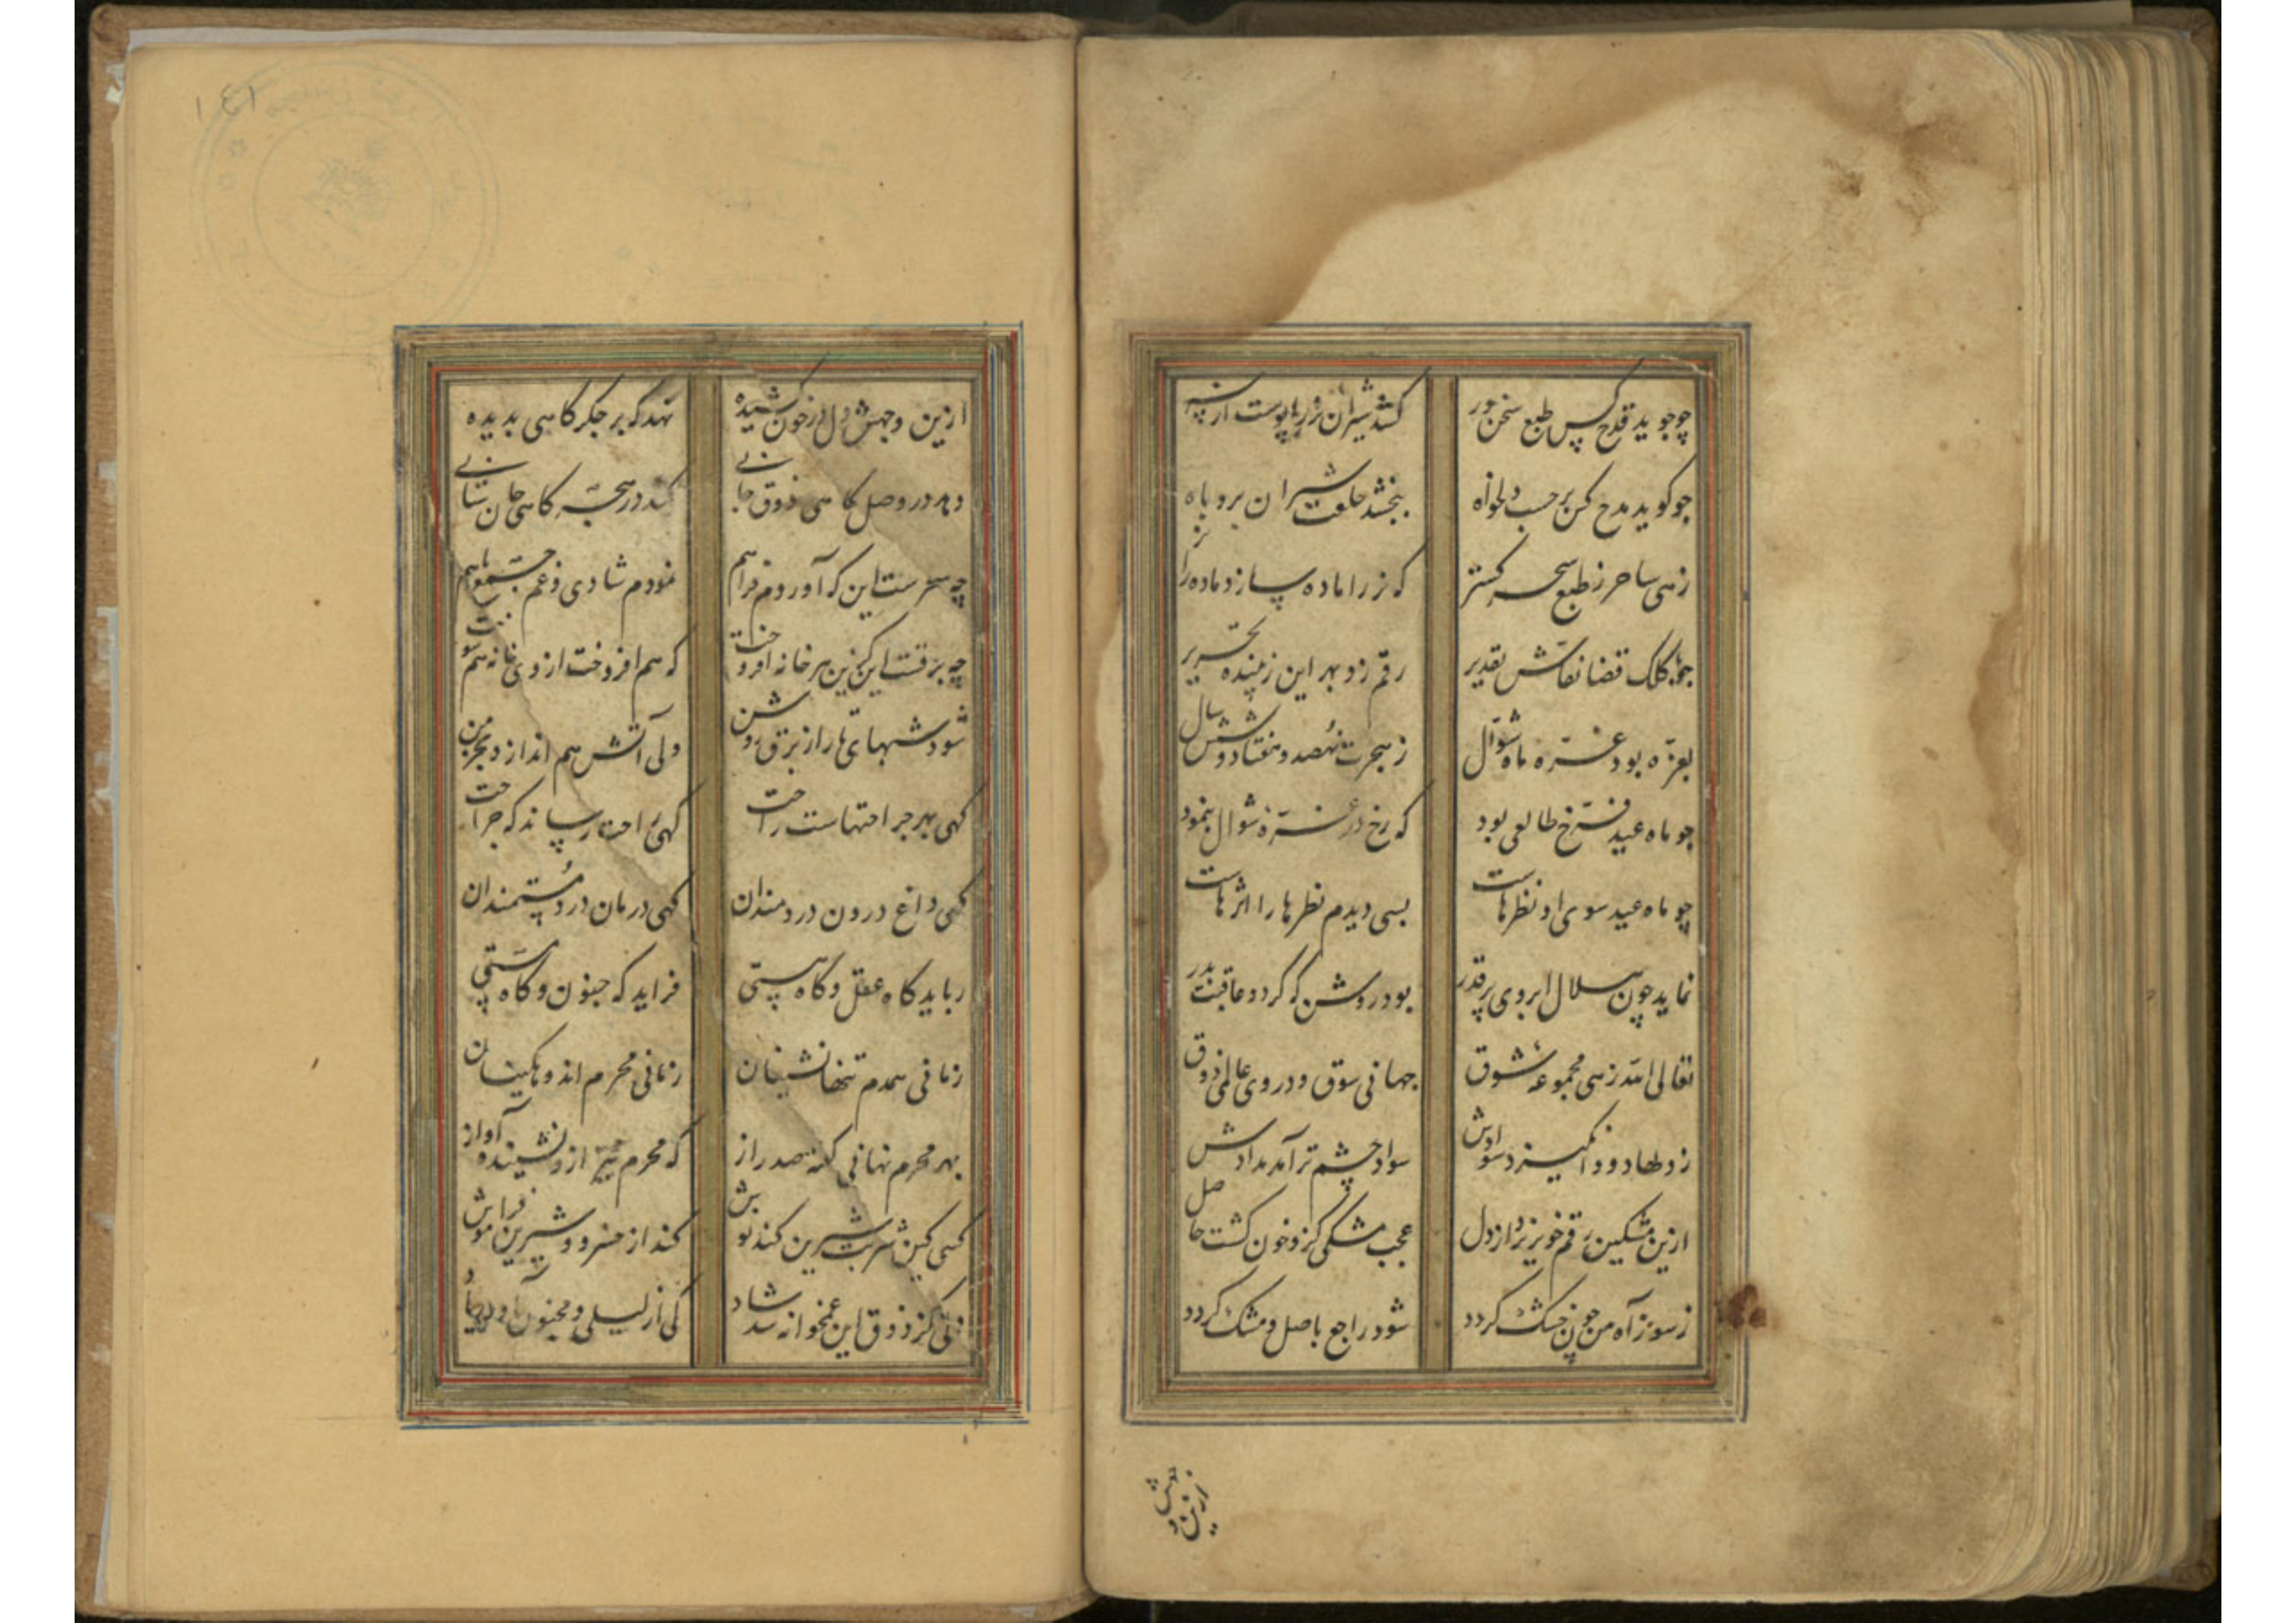 چو جوید قدح کس طبع سخن‌ور
کشد شیران نر را پوست از
چو کوید مدح کس بر حسب دلخواه
ببخشد خلعت شیران بروباه
زهی ساحر ز طبع سحر کستر
که نر را ماده سازد ماده را نر
کلک قضا نقاش تقدیر
رقم زد بهر این زیبنده تحریر
بغره بود غره ماه شوال
ز هجرت نهصد و هفتاد و شش سال
چو ماه عید فرخ طالعی بود
که رخ در غره شوال بنمود
چو ماه عید سوی او نظرهاست
بسی دیدم نظرها را اثرهاست
نماید چون هلال ابروی پر قدر
بود روشن که کردد عاقبت بدر
تعالی الله زهی مجموعه شوق
جهانی سوق و در وی عالمی ذوق
ز دلها دود انکیزد سوادش
سواد چشم تر آمد مدادش
ازین مشکین رقم خونریزد از دل
عجب مشکی کزو خون کشت حاصل
ز سوز آه من چون خشک کردد
شود راجع باصل و مشک کردد
ازین
ازین وجهش دل از خون کشیده
نهد که بر جکر کاهی بدیده
دهد در وصل کاهی ذوق جانی
کند در هجر که کاهی جان ستانی
چه سحرست این که آوردم فراهم
نمودم شادی و غم جمع با هم
چه برقست این کزین هر خانه افروخت
که هم افروخت از وی خانه هم سوخت
شود شبهای تار از برق روشن
ولی آتش هم اندازد بخرمن
کهی بهر جراحتهاست راحت
کهی راحت رساند که جراحت
کهی داغ درون دردمندان
کهی درمان درد مستمندان
رباید کاه عقل و کاه هستی
فزاید که جنون و کاه مستی
زمانی همدم تنها نشینان
زمانی محرم اندوهکینان
بهر محرم نهانی کفته صد راز
که محرم نیز ازو نشنیده آواز
کسی کین شربت شیرین کند نوش
کند از خسرو و شیرین فراموش
دلی کز ذوق این غمخوانه شد شاد
کی از لیلی و مجنون آورد یاد
١٤١